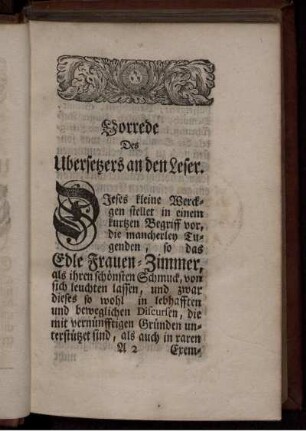 Vorrede
Des
Ubersetzers an den Leser.
DIeses kleine Werck-
gen stellet in einem
kurtzen Begriff vor,
die mancherley Tu-
genden, so das
Edle Frauen-Zimmer,
als ihren schönsten Schmuck, von
sich leuchten lassen, und zwar
dieses so wohl in lebhafften
und beweglichen Discursen, die
mit vernünfftigen Gründen un-
terstützet sind, als auch in raren
A 2 Exem-